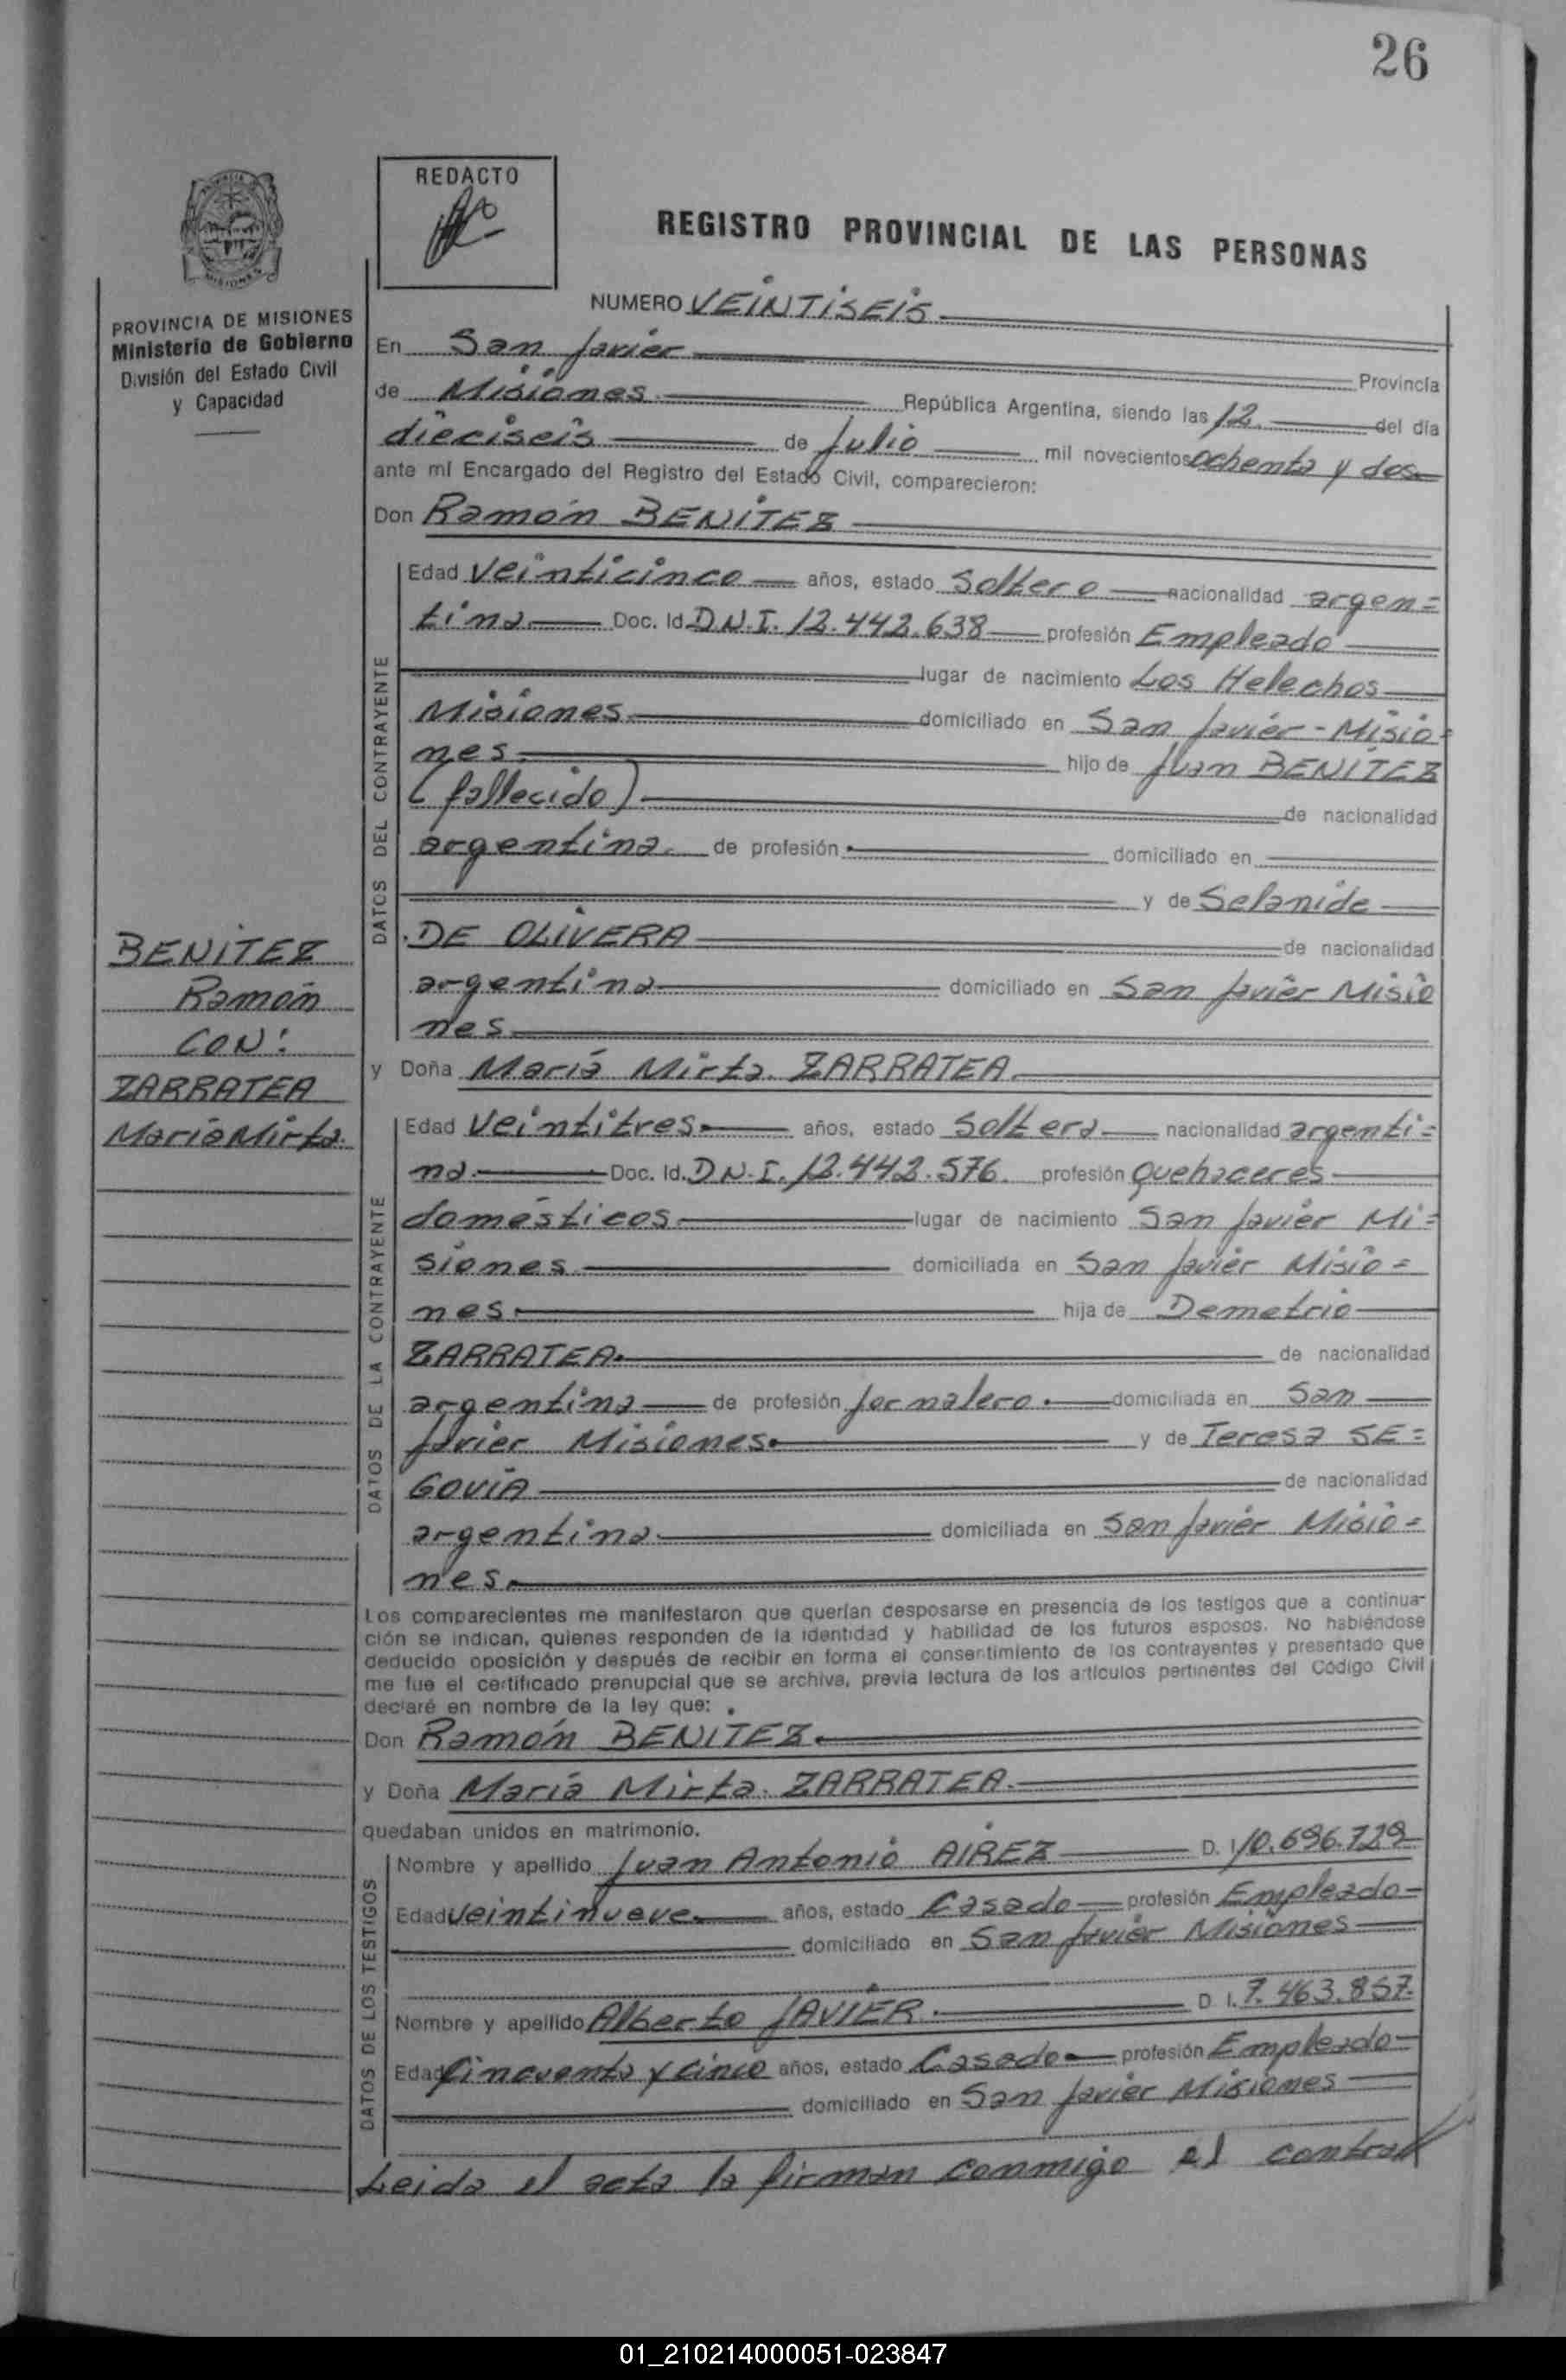 26
REDACTO
REGISTRO PROVINCIAL DE LAS PERSONAS
MISIONES
PROVINCIA DE MISIONES
Ministerio de Gobierno
División del Estado Civil
y Capacidad
NUMERO VEINTISEIS
En San Javier Provincia
de Misiones República Argentina, siendo las 12 del día
dieciseis de Julio mil novecientos ochenta y dos
ante mí Encargado del Registro del Estado Civil, comparecieron:
Don Ramón BENITEZ
DATOS DEL CONTRAYENTE
Edad veinticinco años, estado Soltero nacionalidad argen=
tina Doc. Id D.N.I. 12.442.638 profesión Empleado
lugar de nacimiento Los Helechos
Misiones domiciliado en San Javier - Misio=
nes hijo de Juan BENITEZ
(fallecido) de nacionalidad
argentina de profesión domiciliado en
y de Selanide
DE OLIVERA de nacionalidad
argentina domiciliado en San Javier Misio
nes
BENITEZ
Ramón
CON:
ZARRATEA
María Mirta.
y Doña María Mirta ZARRATEA
DATOS DE LA CONTRAYENTE
Edad veintitres años, estado Soltera nacionalidad argenti=
na Doc. Id. D.N.I. 12.442.576. profesión quehaceres
domésticos lugar de nacimiento San Javier Mi=
siones domiciliada en San Javier Misio=
nes hija de Demetrio
ZARRATEA de nacionalidad
argentina de profesión Jornalero domiciliada en San
Javier Misiones y de Teresa SE=
GOVIA de nacionalidad
argentina domiciliada en San Javier Misio=
nes
Los comparecientes me manifestaron que querían desposarse en presencia de los testigos que a continua-
ción se indican, quienes responden de la identidad y habilidad de los futuros esposos. No habiéndose
deducido oposición y después de recibir en forma el consentimiento de los contrayentes y presentado que
me fue el certificado prenupcial que se archiva, previa lectura de los artículos pertinentes del Código Civil
declaré en nombre de la ley que:
Don Ramón BENITEZ
y Doña María Mirta ZARRATEA
quedaban unidos en matrimonio.
DATOS DE LOS TESTIGOS
Nombre y apellido Juan Antonio AIREZ D. I. 10.696.729
Edad veintinueve años, estado Casado profesión Empleado
domiciliado en San Javier Misiones
Nombre y apellido Alberto JAVIER D. I. 7.463.857
Edad Cincuenta y cinco años, estado Casado profesión Empleado
domiciliado en San Javier Misiones
Leida el acta la firman conmigo el contra
01_210214000051-023847